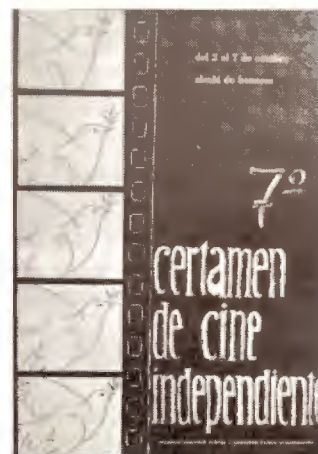 del 2 al 7 de
alcalá de henares
7º
certamen
de cine
independiente